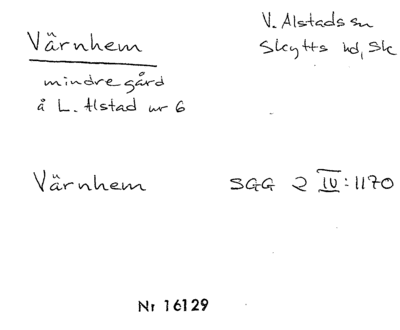 Värnhem
V. Alstads sn
Skytts hd, Sk
mindre gård
å L. Alstad nr 6
Värnhem
SGG 2 IV:1170
Nr 16129